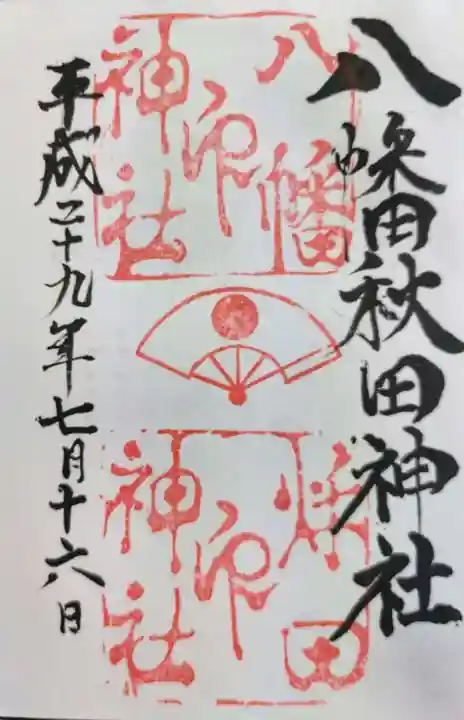 八幡秋田神社
八幡
神社
印
秋田
神社
印
平成二十九年七月十六日